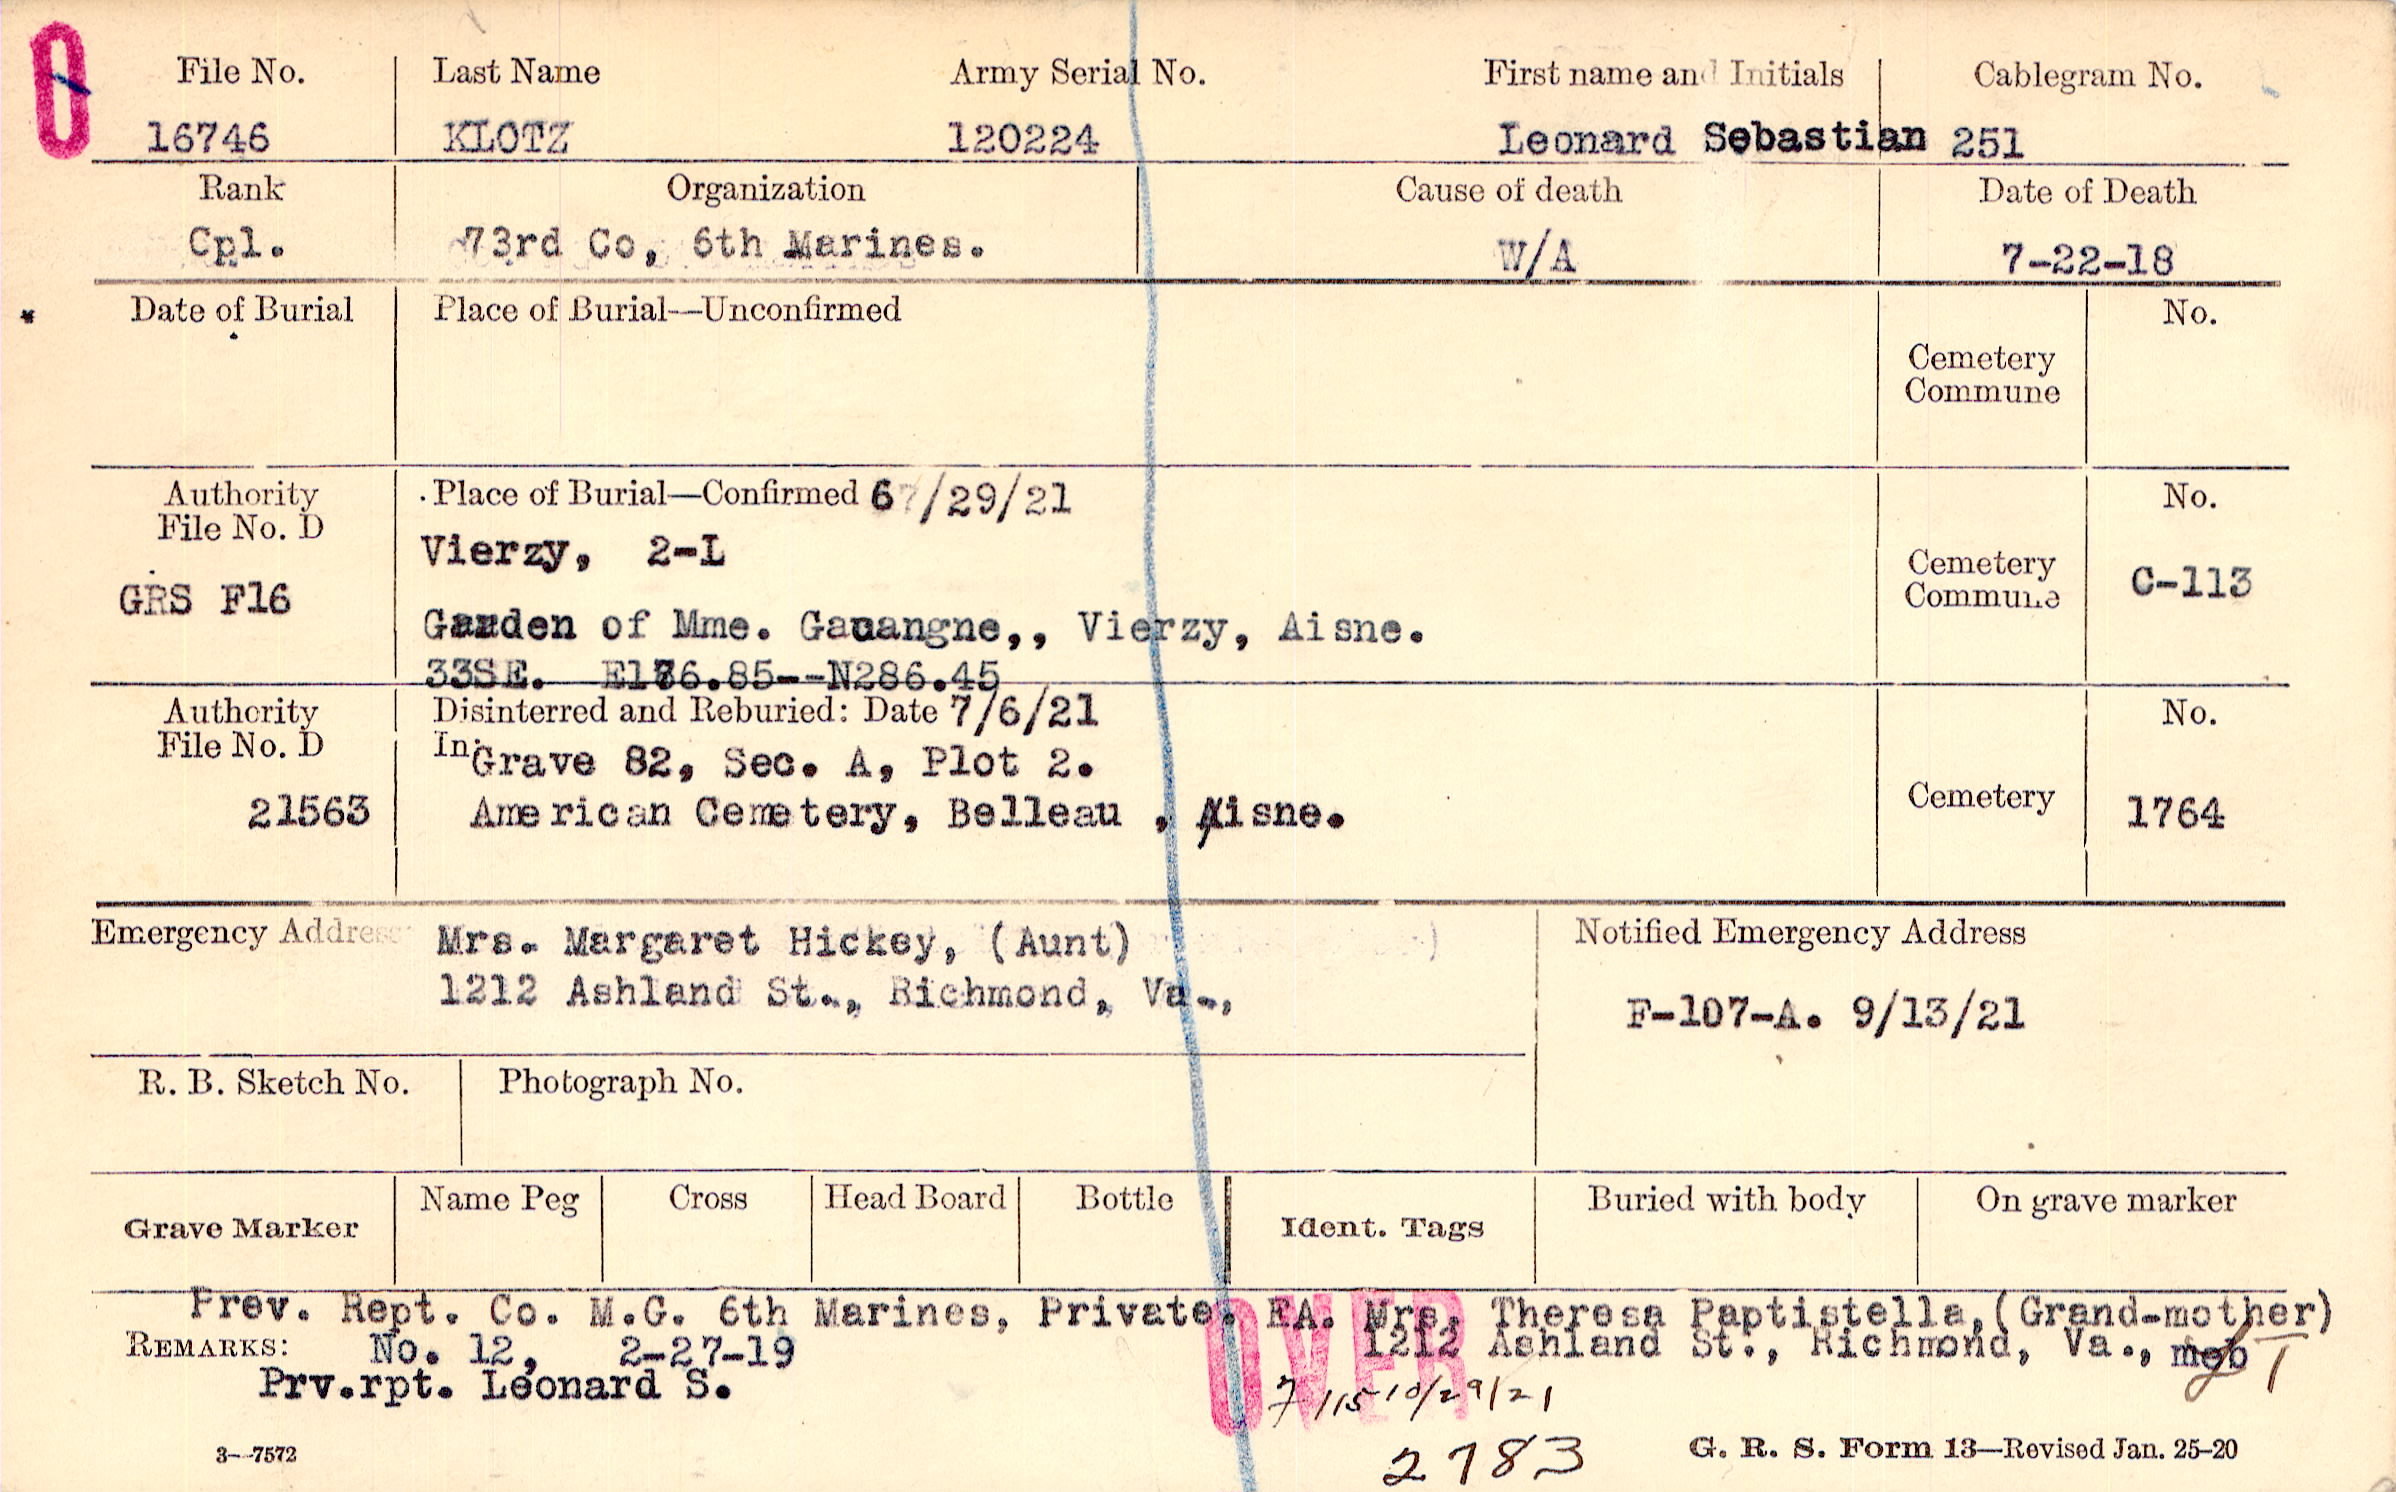 0
File No. Last Name Army Serial No. First name and Initials Cablegram No.
16746 KLOTZ 120224 Leonard Sebastian 251
Rank Organization Cause of death Date of Death
Cpl. 73rd Co, 6th Marines. W/A 7-22-18
Date of Burial Place of Burial—Unconfirmed No.
Cemetery
Commune
Authority Place of Burial—Confirmed 6/29/21 No.
File No. D
Vierzy, 2-L
Cemetery
GRS F16 Commune C-113
Garden of Mme. Gauangne,, Vierzy, Aisne.
33SE. E176.85--N286.45
Authority Disinterred and Reburied: Date 7/6/21 No.
File No. D In: Grave 82, Sec. A, Plot 2.
21563 American Cemetery, Belleau , Aisne. Cemetery 1764
Emergency Address Mrs. Margaret Hickey, (Aunt) Notified Emergency Address
1212 Ashland St., Richmond, Va., F-107-A. 9/13/21
R. B. Sketch No. Photograph No.
Grave Marker Name Peg Cross Head Board Bottle Ident. Tags Buried with body On grave marker
Prev. Rept. Co. M.G. 6th Marines, Private. EA. Mrs. Theresa Paptistella,(Grand-mother)
REMARKS: No. 12, 2-27-19 1212 Ashland St., Richmond, Va., meb
Prv.rpt. Leonard S.
OVER
7/15 10/29/21
2783
3—7572 G. R. S. Form 13—Revised Jan. 25-20